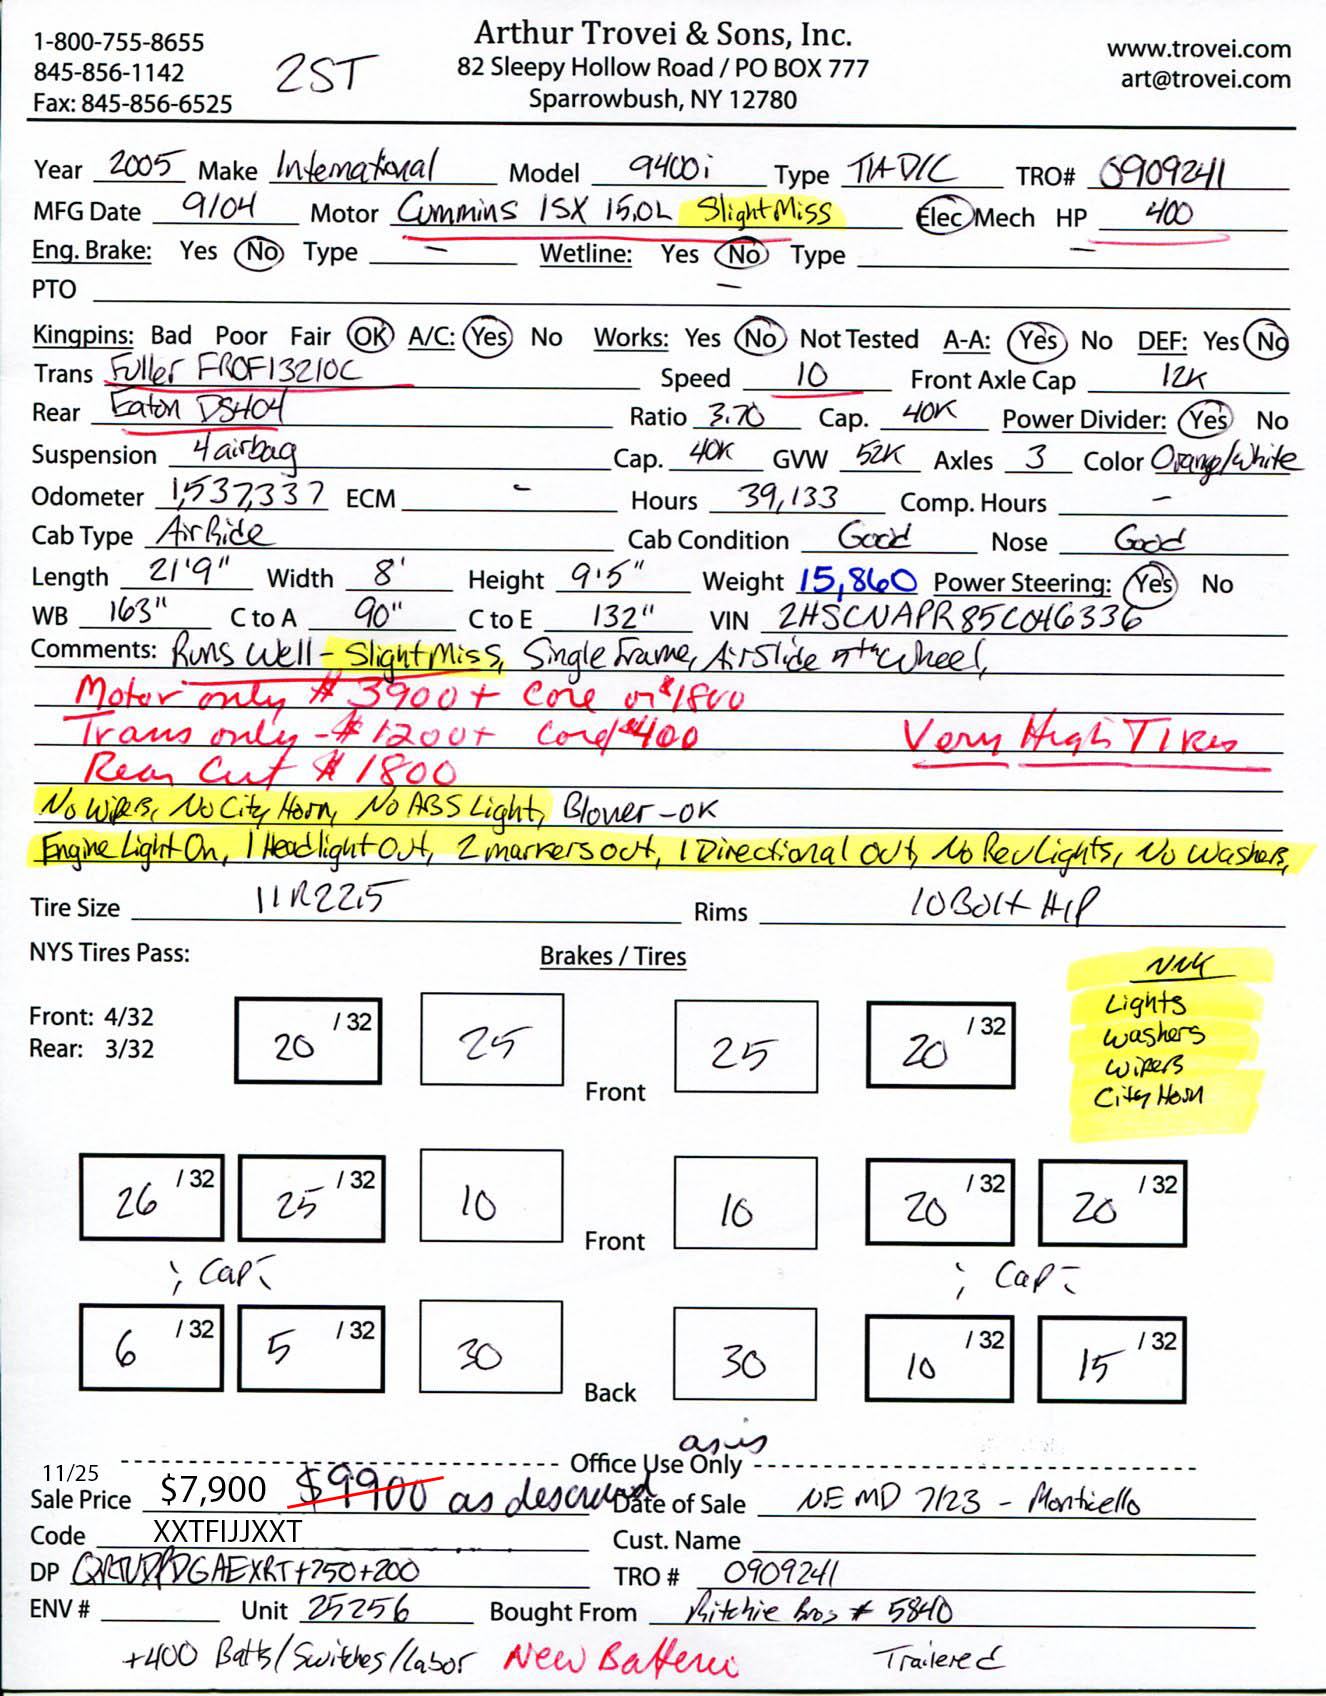 1-800-755-8655
845-856-1142
Fax: 845-856-6525
2ST
Arthur Trovei & Sons, Inc.
82 Sleepy Hollow Road / PO BOX 777
Sparrowbush, NY 12780
www.trovei.com
art@trovei.com
Year 2005 Make International Model 9400i Type TIA-D/C TRO# 0909241
MFG Date 9/04 Motor Cummins ISX 15.0L Slight Miss Elec Mech HP 400
Eng. Brake: Yes No Type – Wetline: Yes No Type –
PTO –
Kingpins: Bad Poor Fair OK A/C: Yes No Works: Yes No Not Tested A-A: Yes No DEF: Yes No
Trans Fuller FROF13210C Speed 10 Front Axle Cap 12K
Rear Eaton DS404 Ratio 3.70 Cap. 40K Power Divider: Yes No
Suspension 4 airbag Cap. 40K GVW 52K Axles 3 Color Orange/White
Odometer 1,537,337 ECM – Hours 39,133 Comp. Hours –
Cab Type Air Ride Cab Condition Good Nose Good
Length 21'9" Width 8' Height 9'5" Weight 15,860 Power Steering: Yes No
WB 163" C to A 90" C to E 132" VIN 2HSCNAPR85C046336
Comments: Runs Well - Slight Miss, Single Frame, Air Slide 5th Wheel,
Motor only $3900 + Core or $1800
Trans only - $1200 + Core $400 Very High Tires
Rear Cut $1800
No Wipers, No City Horn, No ABS Light, Blower - OK
Engine Light On, 1 Headlight Out, 2 markers out, 1 Directional Out, No Rev Lights, No Washers,
Tire Size 11R22.5 Rims 10 Bolt H/P
NYS Tires Pass: Brakes / Tires
Lights
Washers
Wipers
City Horn
Front: 4/32
Rear: 3/32
20 /32 25 Front 25 20 /32
26 /32 25 /32 10 Front 10 20 /32 20 /32
; Cap - ; Cap -
6 /32 5 /32 30 Back 30 10 /32 15 /32
as is
Office Use Only
11/25
Sale Price $7,900 $9900 as described Date of Sale NE MD 7/23 - Monticello
Code XXTFIJJXXT Cust. Name
DP +750+200 TRO # 0909241
ENV # Unit 25256 Bought From Ritchie Bros # 5840
+400 Batts/Switches/Labor New Batteries Trailered